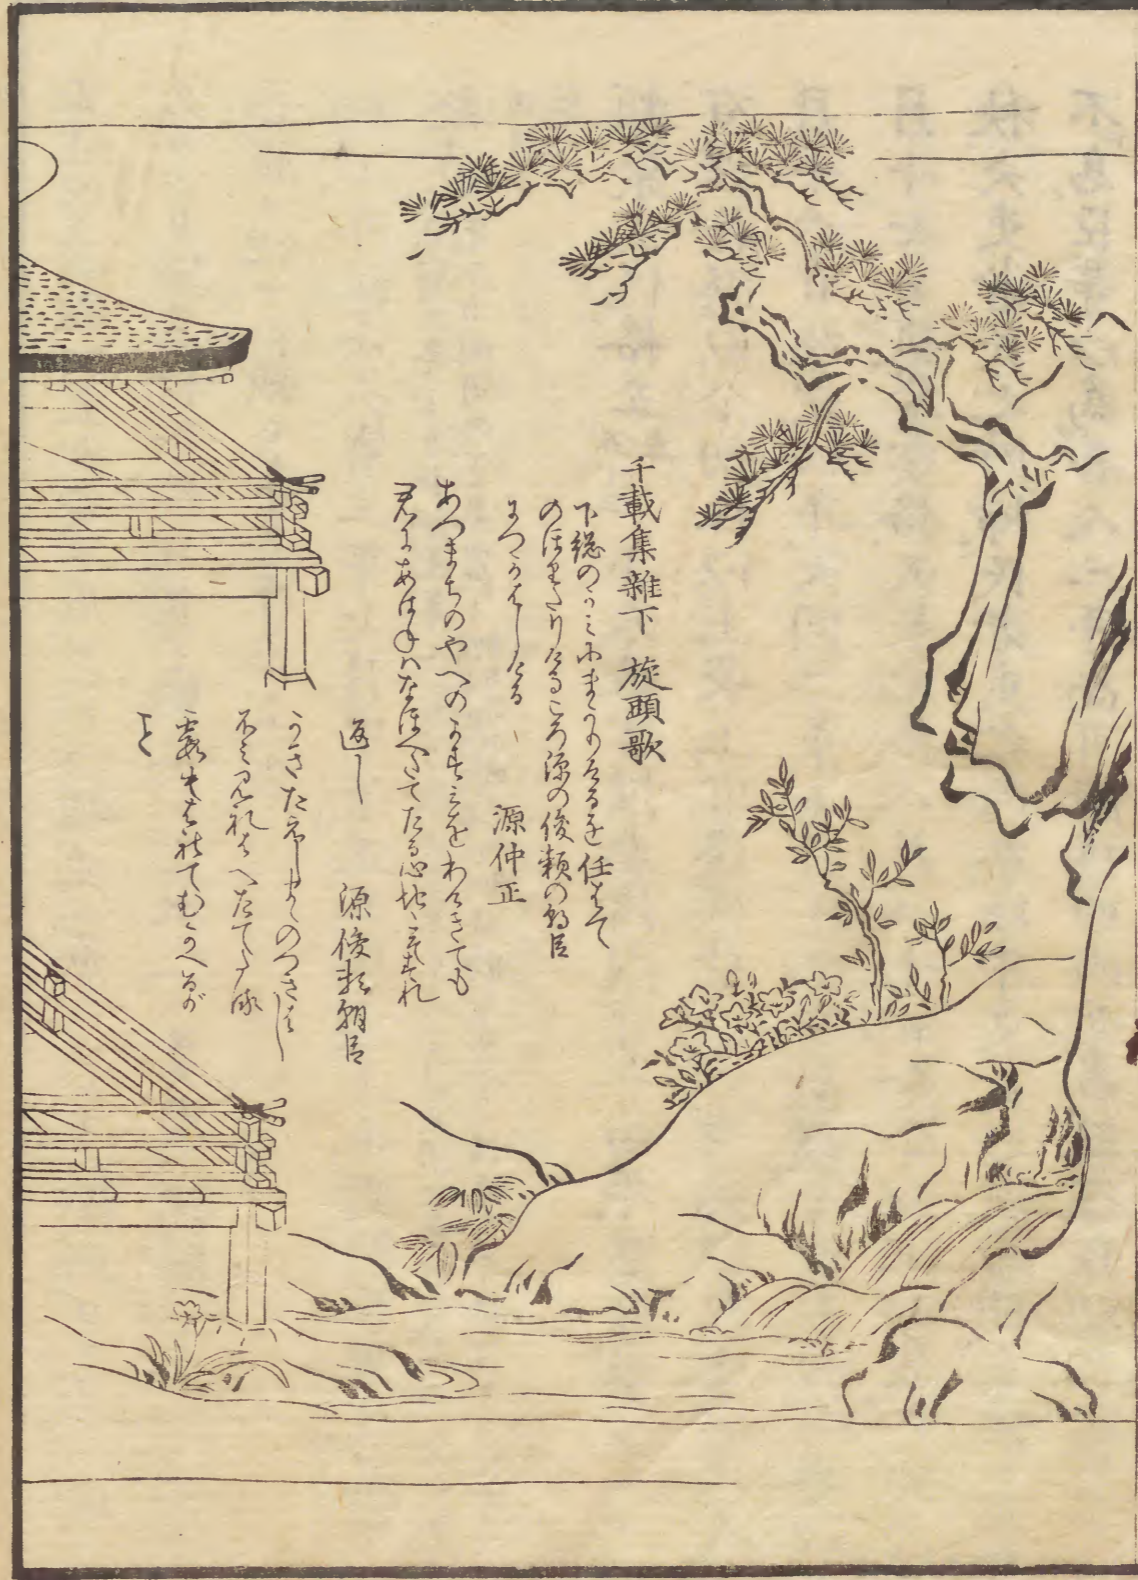 千載集雑下 旋頭歌
下総のかみにまかりけるを任はて
のほりたりけるころ源の俊頼の朝臣
につかはしける
源仲正
あつまちのやへのかすみをわけきても
君にあはねはなほへたてたる心地こそすれ
返し
源俊頼朝臣
かきたえしまゝのつきはし
ふみ見れはへたてたる
霞もはれてむかへるが
こと